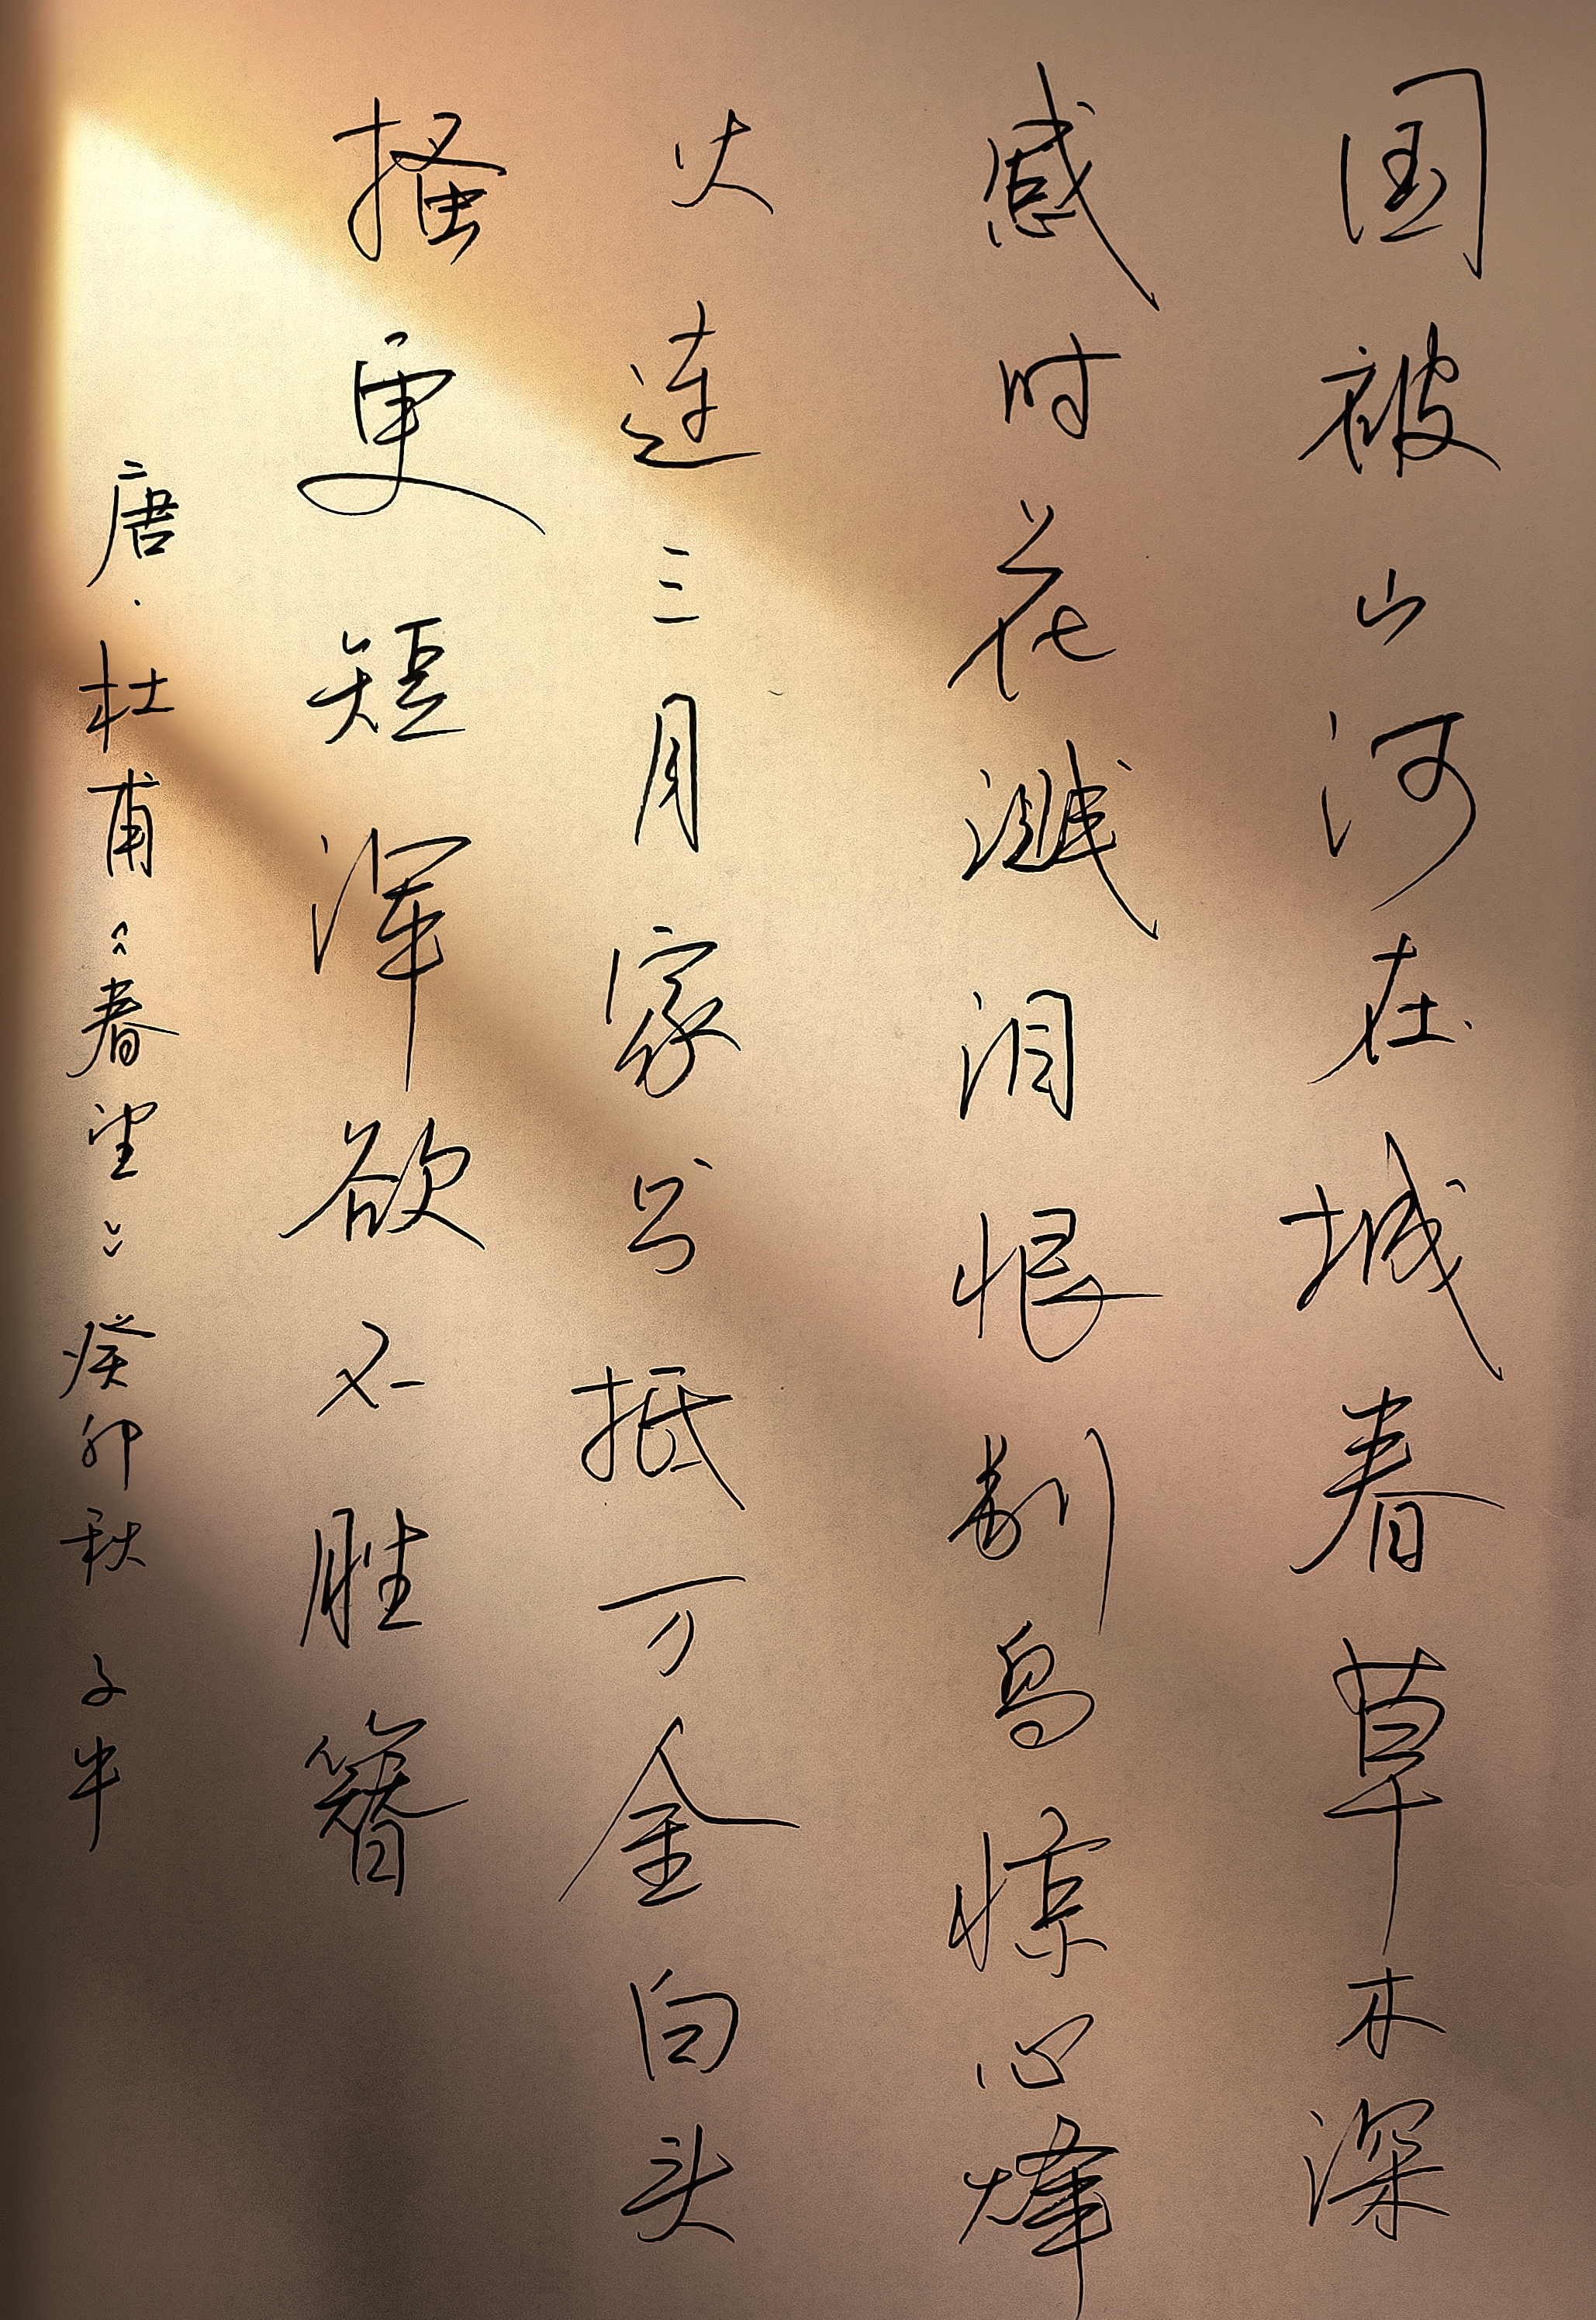 国被山河在城春草木深
感时花溅泪恨别鸟惊心烽
火连三月家书抵万金白头
搔更短浑欲不胜簪
唐·杜甫《春望》癸卯秋 子牛